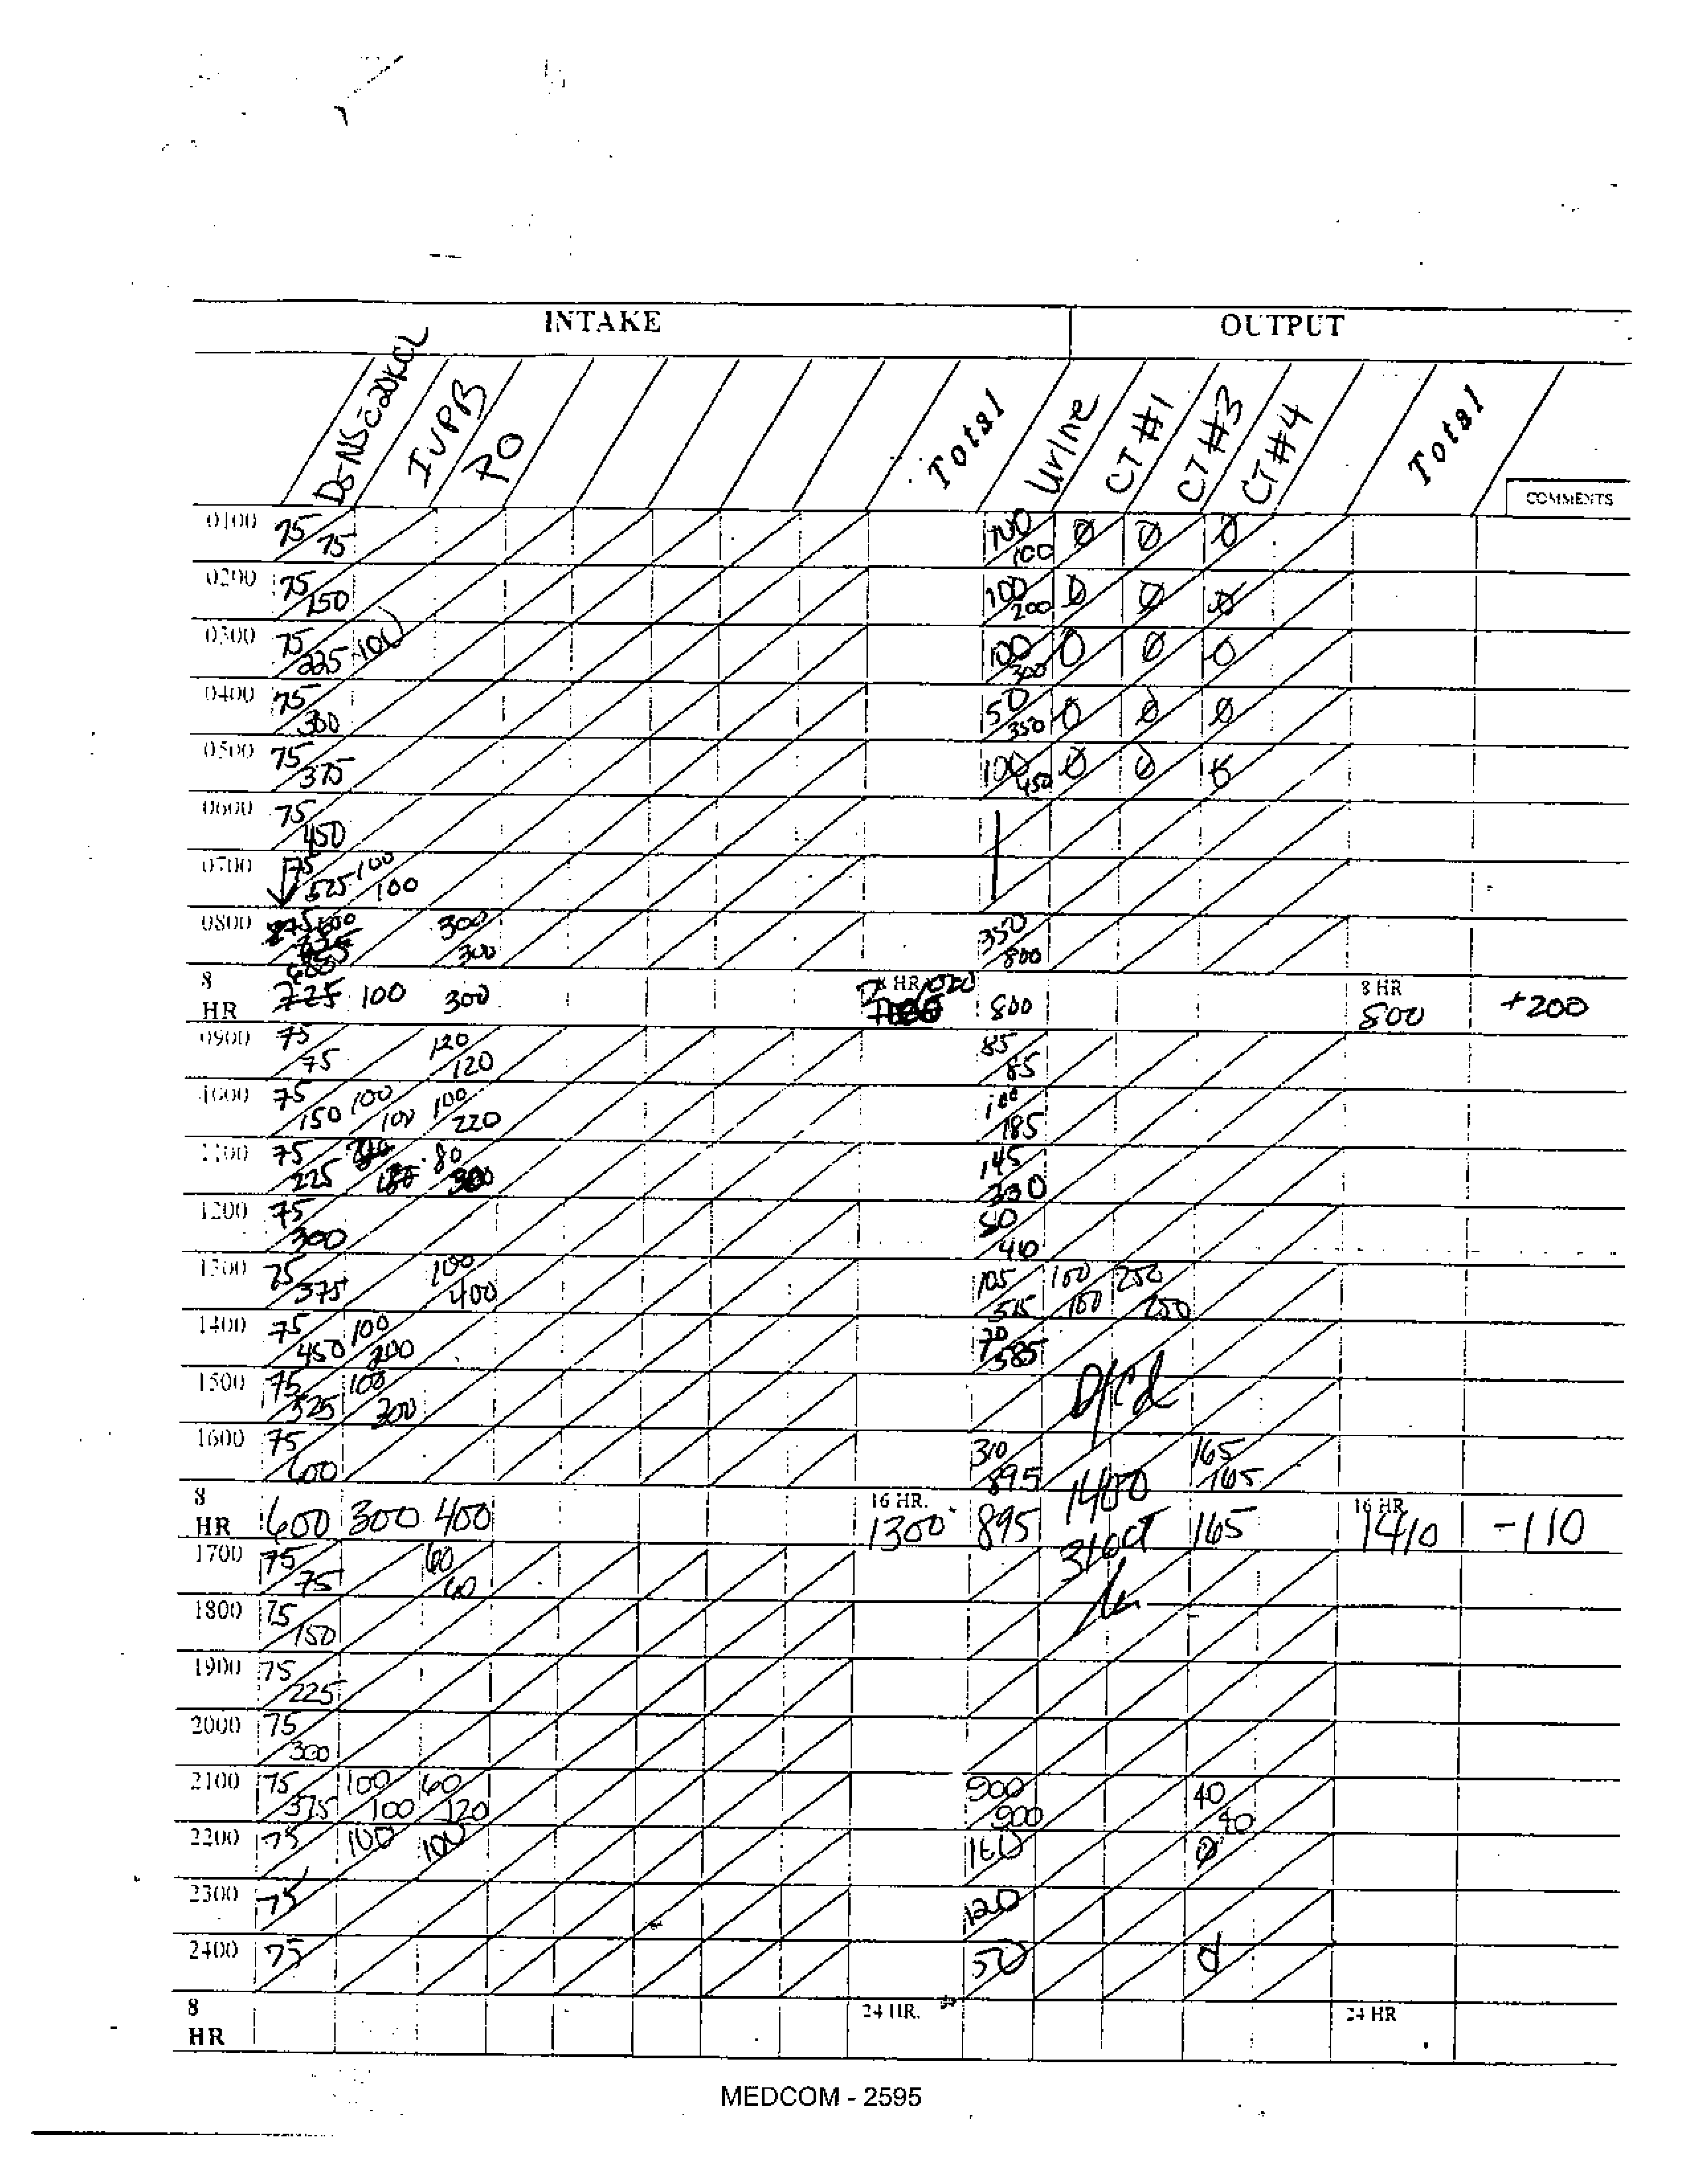 INTAKE OUTPUT
D5NS c̄ 20KCL IVPB PO Total Urine CT #1 CT #3 CT #4 Total
COMMENTS
0100 75 75 100 100 Ø Ø Ø
0200 75 150 100 200 Ø Ø Ø
0300 75 225 100 100 300 Ø Ø Ø
0400 75 300 50 350 Ø Ø Ø
0500 75 375 100 450 Ø Ø Ø
0600 75 450
0700 75 525 100 100
0800 300 300 350 800
8 HR 100 300 8 HR 1000 800 8 HR 800 +200
0900 75 75 120 120 85 85
1000 75 150 100 100 100 220 100 185
1100 75 225 80 300 145 330
1200 75 300 80 410
1300 75 375 100 400 105 515 100 100 250 250
1400 75 450 100 200 70 585
1500 75 525 100 300 D/Cd
1600 75 600 310 895 1400 165 165
8 HR 600 300 400 16 HR. 1300 895 31 OCT 165 16 HR 1410 -110
1700 75 75 60 60
1800 75 150
1900 75 225
2000 75 300
2100 75 375 100 100 60 120 900 900 40 40
2200 75 100 100 160 Ø
2300 75 120
2400 75 50 Ø
8 HR 24 HR. 24 HR
MEDCOM - 2595